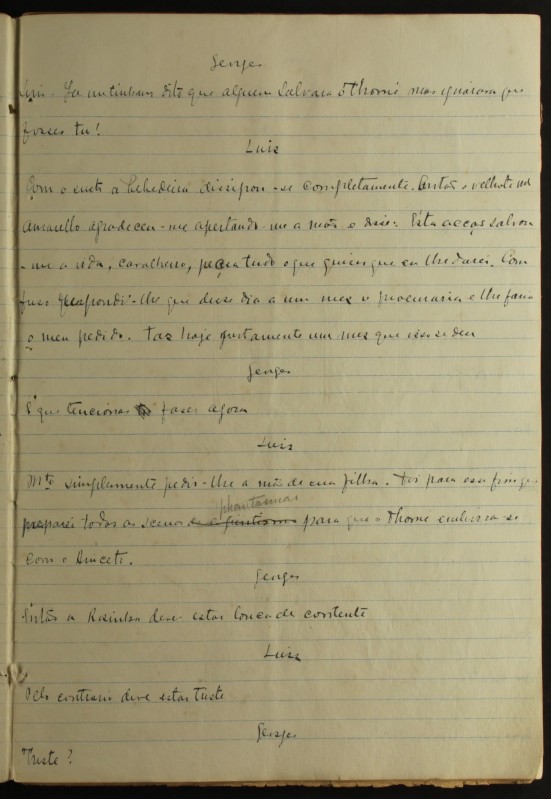 Jorge
Já me tinham dito que alguem salvara o Thomé mas ignorava que
fosses tu!
Luiz
Com o susto a bebedeira dissipou-se completamente. Então o velhote
Amarello agradeceu-me apertando-me a mão e disse: Esta acção salvou
-me a vida, cavalheiro, peça tudo o que quizer que eu lhe darei. Com
respondi-lhe que desse dia a um mez o procuraria e lhe faria
o meu pedido. Faz hoje justamente um mez que isso se deu
Jorge
E que tencionas fazer agora
Luiz
Mto simplesmente pedir-lhe a mão de sua filha. Foi para esse fim que
preparei todas as scenas phantasmas para que o Thomé embirrasse
com o Aniceto.
Jorge
Então a Rosinha deve estar louca de contente
Luiz
Pelo contrario deve estar triste
Jorge
Triste?